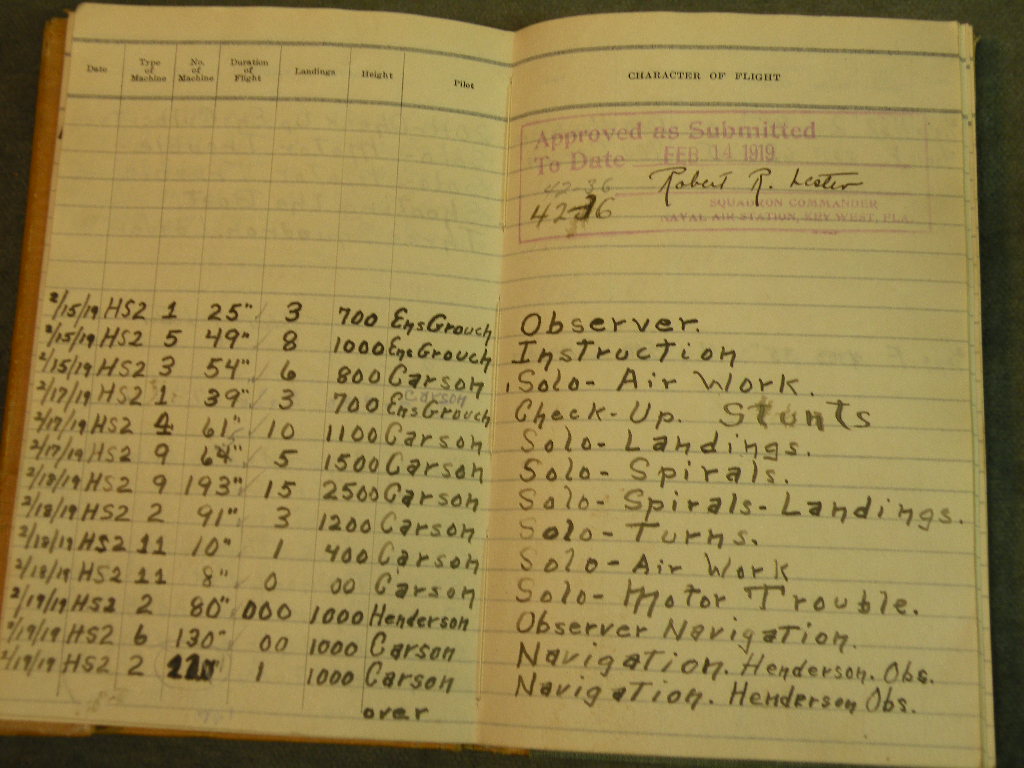 Date Type of Machine No. of Machine Duration of Flight Landings Height Pilot CHARACTER OF FLIGHT
Approved as Submitted
To Date FEB 14 1919
42-36 Robert R. Lester
SQUADRON COMMANDER
42-36
NAVAL AIR STATION, KEY WEST, FLA.
2/15/19 HS2 1 25" 3 700 Ens Grouch Observer.
2/15/19 HS2 5 49" 8 1000 Ens Grouch Instruction
2/15/19 HS2 3 54" 6 800 Carson Solo- Air Work.
Carson
2/17/19 HS2 1 39" 3 700 Ens Grouch Check-Up. Stunts
2/17/19 HS2 4 61" 10 1100 Carson Solo- Landings.
2/17/19 HS2 9 64" 5 1500 Carson Solo- Spirals.
2/18/19 HS2 9 193" 15 2500 Carson Solo- Spirals- Landings.
2/18/19 HS2 2 91" 3 1200 Carson Solo- Turns.
2/18/19 HS2 11 10" 1 400 Carson Solo- Air Work
2/18/19 HS2 11 8" 0 00 Carson Solo- Motor Trouble.
2/19/19 HS2 2 80" 000 1000 Henderson Observer Navigation.
2/19/19 HS2 6 130" 00 1000 Carson Navigation. Henderson. Obs.
2/19/19 HS2 2 110" 1 1000 Carson Navigation. Henderson Obs.
over